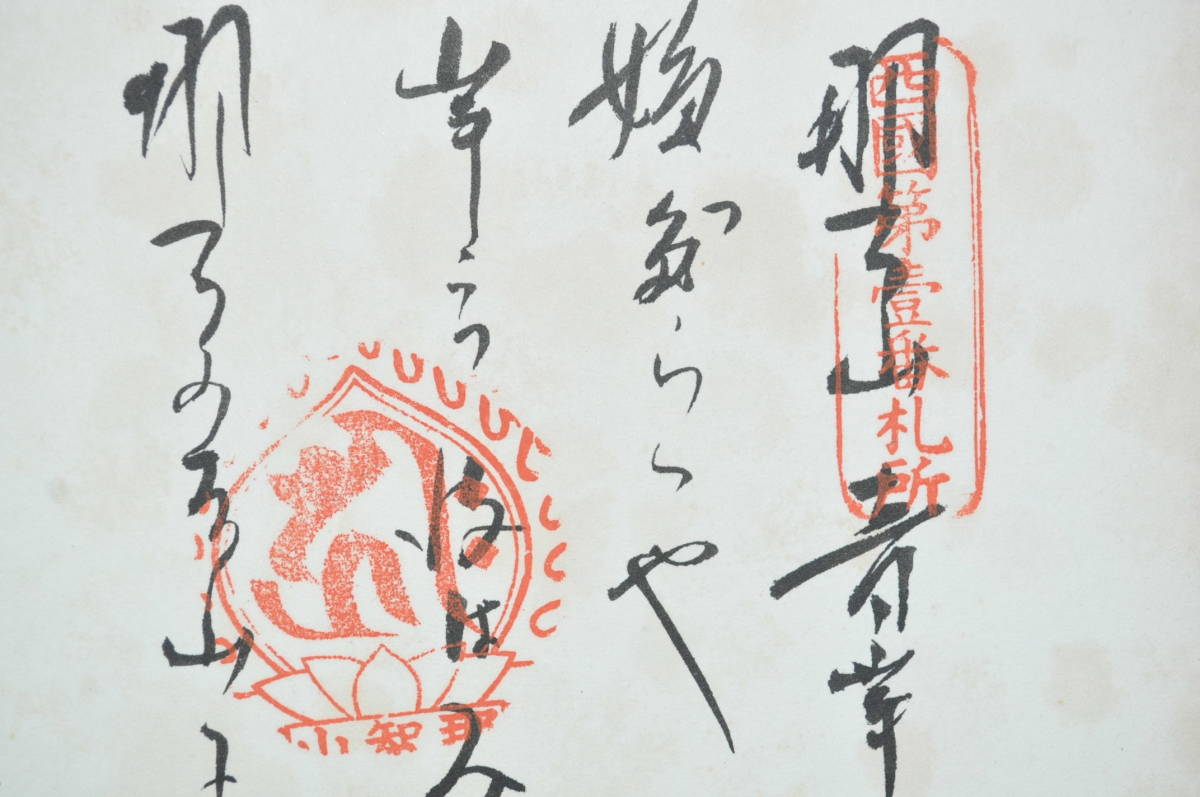 西國第壹番札所
那智山 青岸
らくや
岸うつ波はみ
那智のお山に
那智山